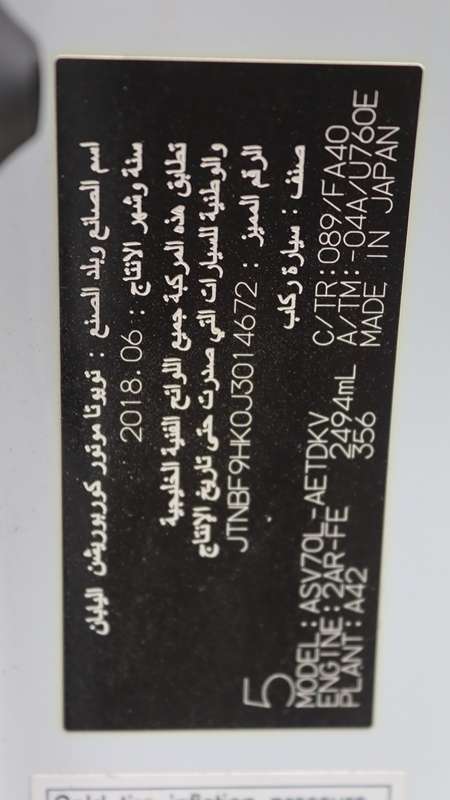 اسم الصانع وبلد الصنع : تويوتا موتور كوربوريشن اليابان
سنة وشهر الانتاج : 2018.06
تطابق هذه المركبة جميع اللوائح الفنية الخليجية
والوطنية للسيارات التي صدرت حتى تاريخ الإنتاج
الرقم المميز : JTNBF9HK0J3014672
صنف : سيارة ركاب
5
MODEL:ASV70L-AETDKV C/TR:089/FA40
ENGINE:2AR-FE 2494mL A/TM:-04A/U760E
PLANT:A42 356 MADE IN JAPAN
Cold tire inflation pressure